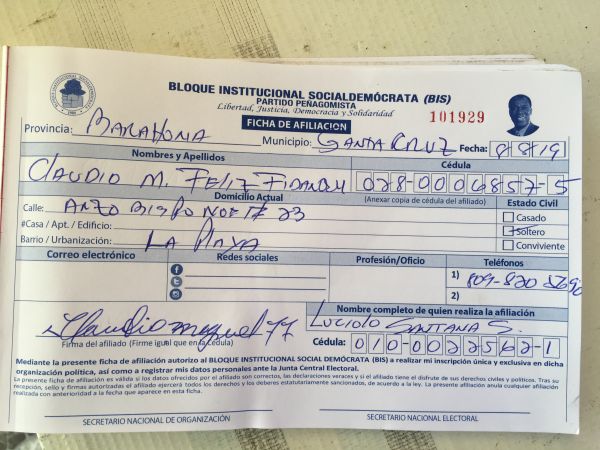 BLOQUE INSTITUCIONAL SOCIALDEMÓCRATA (BIS)
PARTIDO PEÑAGOMISTA
Libertad, Justicia, Democracia y Solidaridad
FICHA DE AFILIACION
101929
Provincia: BARAHONA Municipio: SANTA CRUZ Fecha: 8/8/19
Nombres y Apellidos Cédula
CLAUDIO M. FELIZ 028-0006857-5
Domicilio Actual (Anexar copia de cédula del afiliado) Estado Civil
Calle: 23 Casado
#Casa / Apt. / Edificio: Soltero
Barrio / Urbanización: LA PLAYA Conviviente
Correo electrónico Redes sociales Profesión/Oficio Teléfonos
1) 809-820
2)
Nombre completo de quien realiza la afiliación
SANTANA S.
Firma del afiliado (Firme igual que en la cédula) Cédula: 010-0022562-1
Mediante la presente ficha de afiliación autorizo al BLOQUE INSTITUCIONAL SOCIAL DEMÓCRATA (BIS) a realizar mi inscripción única y exclusiva en dicha
organización política, así como a registrar mis datos personales ante la Junta Central Electoral.
La presente ficha de afiliación es válida si los datos ofrecidos por el afiliado son correctos, las declaraciones veraces y si el afiliado tiene el disfrute de sus derechos civiles y políticos. Tras su
recepción, sello y firmas autorizadas el afiliado ejercerá todos los derechos y los deberes estatutariamente sancionados, de acuerdo a la ley. La presente afiliación anula cualquier afiliación
realizada con anterioridad a la fecha que aparece en esta ficha.
SECRETARIO NACIONAL DE ORGANIZACIÓN SECRETARIO NACIONAL ELECTORAL